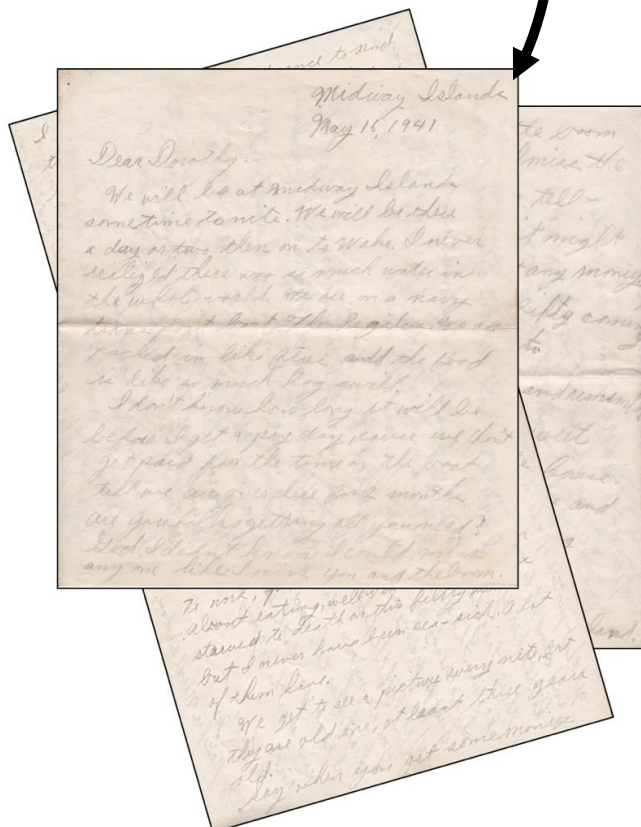 Midway Islands
May 16, 1941
Dear Dorothy:
We will be at Midway Islands
sometime to nite. We will be there
a day or two, then on to Wake. I never
realized there was so much water in
the whole world. We are on a navy
transport boat The
packed in like and the food
is like so much hog swill.
I don't know how long it will be
before I get a pay day, cause we don't
get paid for the time on the boat
till we are over here for 2 months
are you getting all you need?
God, I didn't know I could miss
any one like I miss you and the
and to send
I
te
miss the
tell-
t might
any money
to
and
sweet
house.
and
to work,
about eating, well
starved to death on this filthy
but I never have been sea-sick. A lot
of them have.
We get to see a picture every nite, but
they are old one, at least three years
old.
Say when you get some money